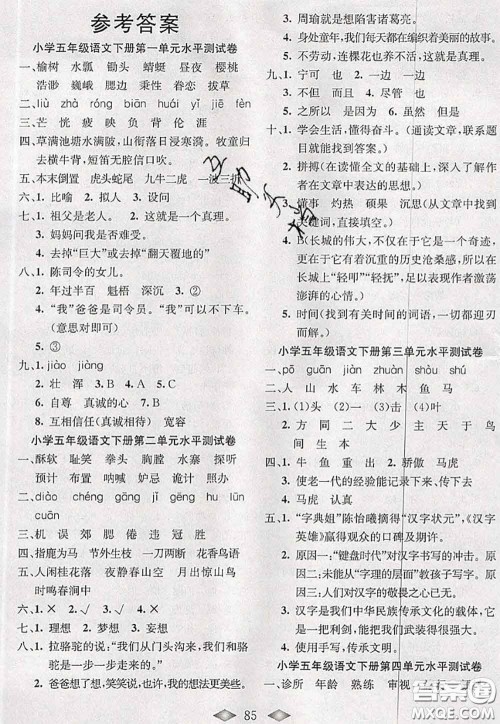 参考答案
小学五年级语文下册第一单元水平测试卷
一、榆树 水瓢 锄头 蜻蜓 昼夜 樱桃
浩渺 巍峨 腮边 男性 眷恋 拔草
二、liù zhá róng biān huái yí jiē fèn
三、芒 恍 疲 映 负 背 伦 涯
四、草满池塘水满陂，山衔落日浸寒漪。牧童归
去横牛背，短笛无腔信口吹。
五、本末倒置 虎头蛇尾 九牛二虎 一波三折
六、1. 比喻 2. 拟人 3. 设问
七、1. 祖父是老人。 2. 这就是一个真理。
3. 妈妈问我是否难过。
4. 去掉“巨大”或去掉“翻天覆地的”
八、1. 陈司令的女儿。
2. 年过半百 魁梧 深沉 3. ②
4. “我”爸爸是司令员。“我”可以不下车。
(意思对即可)
5. ③
九、1. jiào jiàng
2. 壮 浑 3. B 4. A 5. B
6. 自尊 真诚的心
8. 互相信任(真诚相待) 宽容
小学五年级语文下册第二单元水平测试卷
一、酥软 耻笑 拳头 胸膛 水寨 探听
预计 布置 呐喊 妒忌 诡计 擂鼓
二、diào chéng gāng jī gēng hū lún lǔ
cuān
三、机 误 郊 腮 倦 违 冠 胜
四、指鹿为马 节外生枝 一刀两断 花香鸟语
五、人闲桂花落 夜静春山空 月出惊山鸟
时鸣春涧中
六、1. × 2. √ 3. √ 4. ×
七、1. 理想 2. 梦想 3. 妄想
八、1. 拉骆驼的说：“我们从门头沟来，我们骆驼
是一步一步走来的。”
2. 爸爸想了想，笑笑说，也许，你说的更有道理。
3. 周瑜就是想陷害诸葛亮。
4. 身处童年，我们每天都在编织着美丽的故事。
5. 不劳动，连棵花也养不活，这是真理。
九、1. 宁可 也 2. 一边 一边
3. 如果 就 4. 不但 而且
5. 之所以 是因为 6. 虽然 但是
十、1. 学会生活，懂得奋斗。(通读文章，联系题
目就能找到答案。)
2. 拼搏(在读懂全文的基础上，深入了解作者
在文章中表达的思想。)
3. 懂事 灼热 硕果 沉思(从文章中找到关
键词，直接填空。)
4. B(长城的伟大，不仅因为它的宏伟壮观，
更在于它所见证的历史沧桑感，所以我在
长城上“轻叩”“轻抚”，以此来表达作者激荡
澎湃的心情。)
5. 时间(找到有关时间的词语，一切便迎刃
而解。)
小学五年级语文下册第三单元水平测试卷
一、pō guān jiàn zhuàn shòu shú
二、人 山 水 车 林 木 鱼 马
三、1. (1)头 (2)一 (3)日 (4)叶
2. 方 同 二 大 少 主 天 与 鸟
间 生 本
四、1. 牛 鱼 重 出 2. 骄傲 马虎
3. 使老一代的经验能记录下来，传给下一代。
4. 马虎 认真
五、1. “字典姐”陈怡曦摘得“汉字状元”，《汉字
英雄》赢得观众的口碑及期许。
2. 原因一：“键盘时代”对汉字书写的冲击。原
因二：未能从“字理的层面”教孩子写字。原
因三：不能让孩子对汉字充满感情。
3. 汉字是我们中华民族传承文化的载体，它
是一把利剑，能代替武器表现得很强大。
小学五年级语文下册第四单元水平测试卷
一、诊所 年龄 熟练 审视
85
答案圈
MXQE.COM